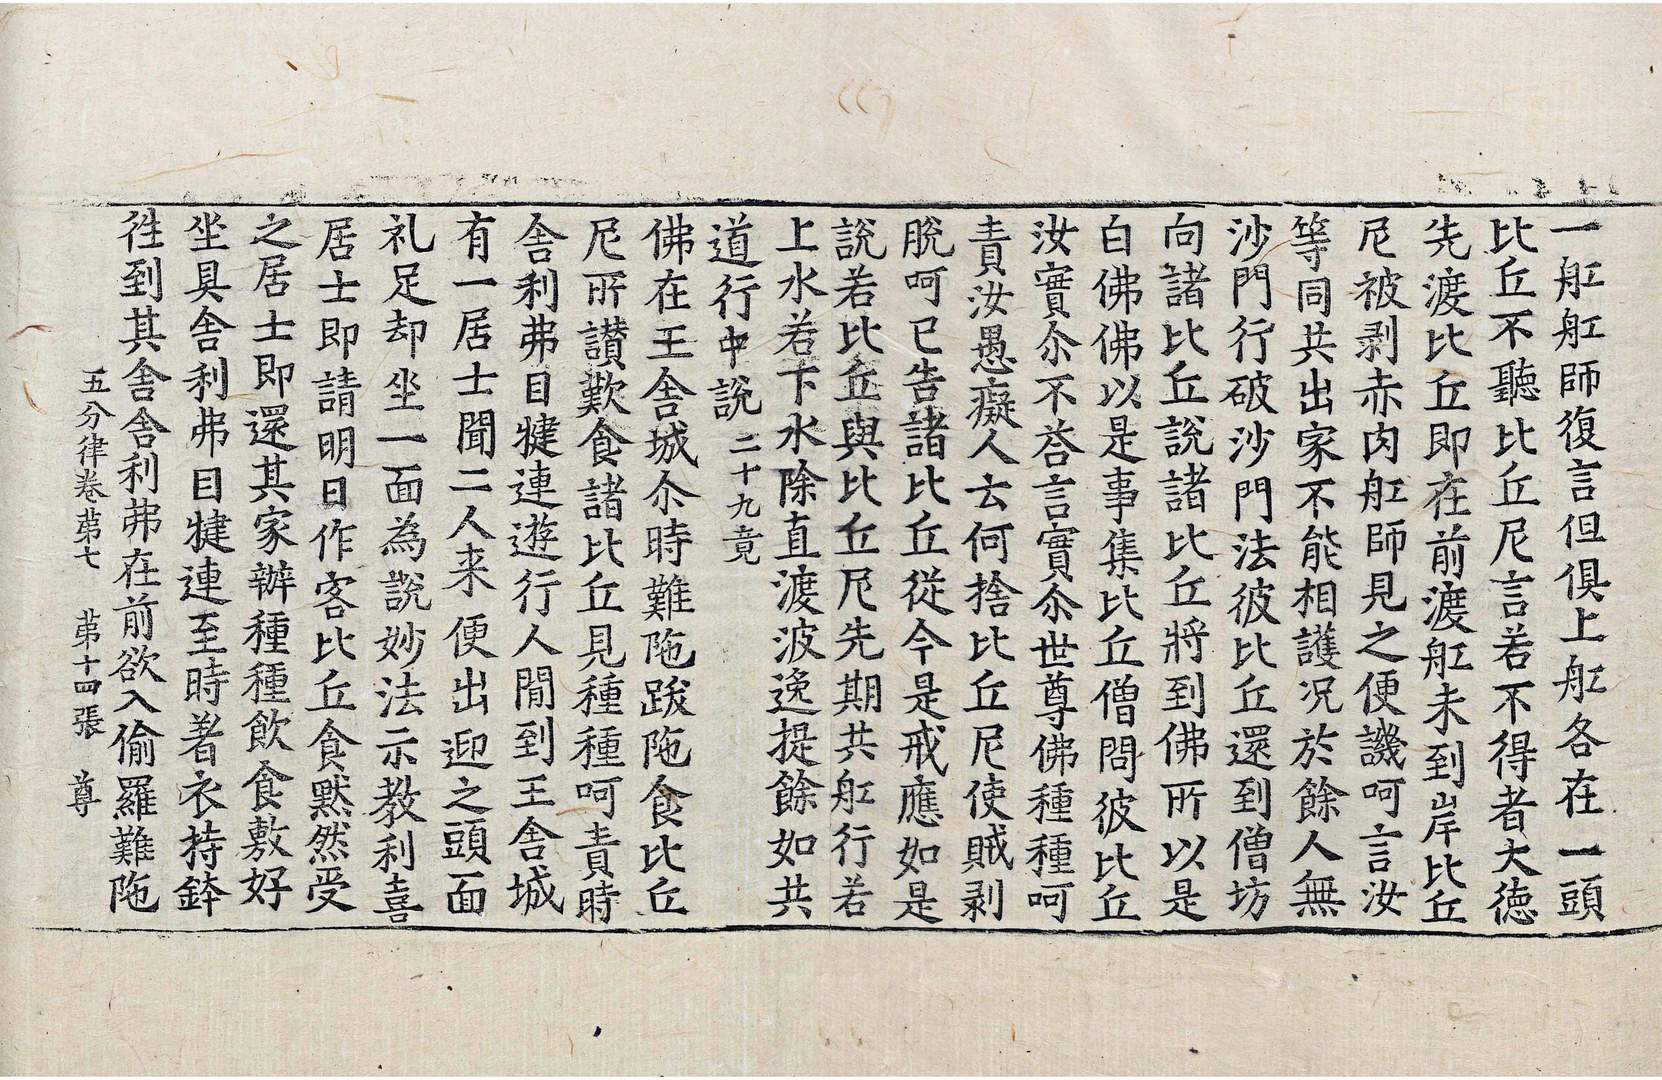 一舡舡師復言但俱上舡各在一頭
比丘不聽比丘尼言若不得者大德
先渡比丘即在前渡舡未到岸比丘
尼被剥赤肉舡師見之便譏呵言汝
等同共出家不能相護况於餘人無
沙門行破沙門法彼比丘還到僧坊
向諸比丘說諸比丘將到佛所以是
白佛佛以是事集比丘僧問彼比丘
汝實尒不荅言實尒世尊佛種種呵
責汝愚癡人云何捨比丘尼使賊剥
脫呵已告諸比丘從今是戒應如是
說若比丘與比丘尼先期共舡行若
上水若下水除直渡波逸提餘如共
道行中說二十九竟
佛在王舍城尒時難陁跋陁食比丘
尼所讃歎食諸比丘見種種呵責時
舍利弗目揵連遊行人間到王舍城
有一居士聞二人来便出迎之頭面
礼足却坐一面為說妙法示教利喜
居士即請明日作客比丘食黙然受
之居士即還其家辦種種飲食敷好
坐具舍利弗目揵連至時著衣持鉢
徃到其舍舍利弗在前欲入偷羅難陁
五分律卷苐七 苐十四張 尊